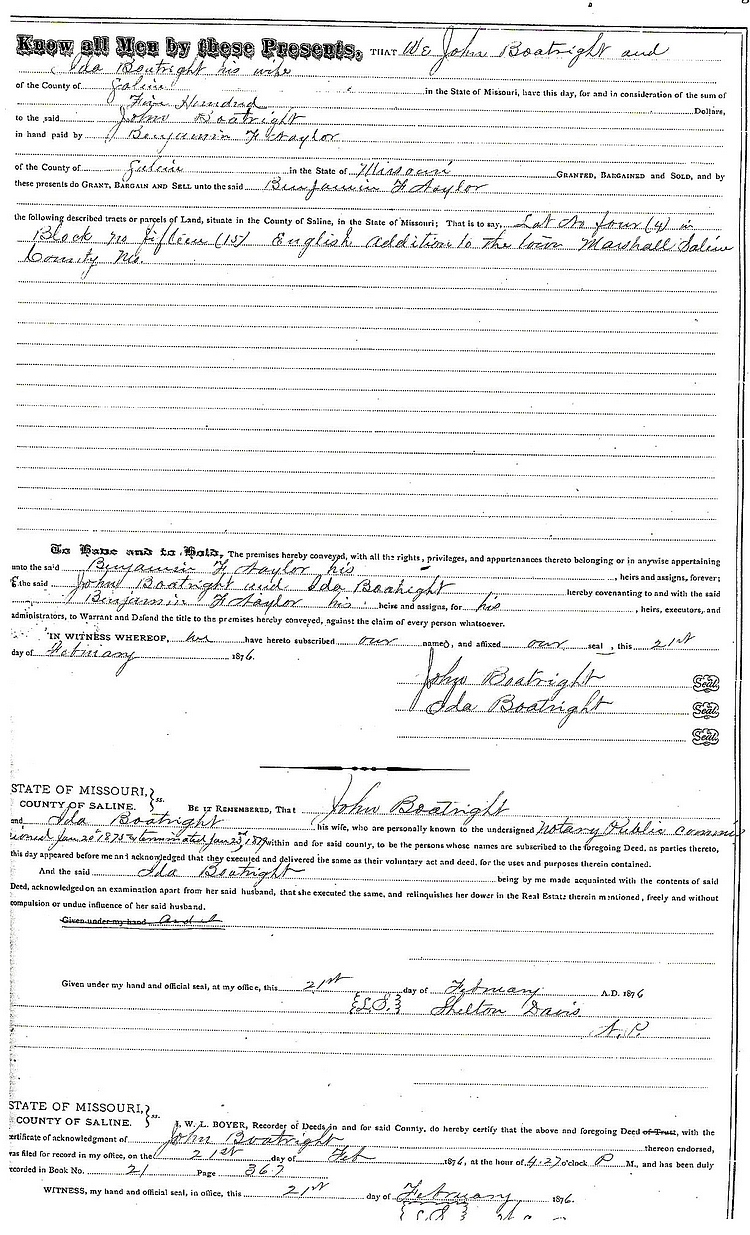 Know all Men by these Presents, THAT We John Boatright and
Ida Boatright his wife
of the County of Saline in the State of Missouri, have this day, for and in consideration of the sum of
Five Hundred Dollars,
to the said John Boatright
in hand paid by Benjamin F Naylor
of the County of Saline in the State of Missouri GRANTED, BARGAINED AND SOLD, and by
these presents do GRANT, BARGAIN AND SELL unto the said Benjamin F Naylor
the following described tracts or parcels of Land, situate in the County of Saline, in the State of Missouri; That is to say, Lot No four (4) in
Block No fifteen (15) English Addition to the town Marshall Saline
County Mo.
To Have and to Hold, The premises hereby conveyed, with all the rights, privileges, and appurtenances thereto belonging or in anywise appertaining
unto the said Benjamin F Naylor his , heirs and assigns, forever;
the said John Boatright and Ida Boatright hereby covenanting to and with the said
Benjamin F Naylor his heirs and assigns, for his , heirs, executors, and
administrators, to Warrant and Defend the title to the premises hereby conveyed, against the claim of every person whatsoever.
IN WITNESS WHEREOF, we have hereto subscribed our names, and affixed our seal , this 21st
day of February 1876.
John Boatright Seal
Ida Boatright Seal
Seal
STATE OF MISSOURI, } ss.
COUNTY OF SALINE. BE IT REMEMBERED, That John Boatright
and Ida Boatright his wife, who are personally known to the undersigned Notary Public commis
ioned Jan 20th 1875 & terminated Jan 23rd 1879 within and for said county, to be the persons whose names are subscribed to the foregoing Deed, as parties thereto,
this day appeared before me and acknowledged that they executed and delivered the same as their voluntary act and deed, for the uses and purposes therein contained.
And the said Ida Boatright being by me made acquainted with the contents of said
Deed, acknowledged on an examination apart from her said husband, that she executed the same, and relinquishes her dower in the Real Estate therein mentioned, freely and without
compulsion or undue influence of her said husband.
Given under my hand and
Given under my hand and official seal, at my office, this 21st day of February A.D. 1876
{L.S.} Shelton Davis
N.P.
STATE OF MISSOURI, } ss.
COUNTY OF SALINE. I, W. L. BOYER, Recorder of Deeds in and for said County, do hereby certify that the above and foregoing Deed of Trust, with the
ertificate of acknowledgment of John Boatright thereon endorsed,
was filed for record in my office, on the 21st day of Feb 1876, at the hour of 4.27 o'clock P M., and has been duly
recorded in Book No. 21 Page 367
WITNESS, my hand and official seal, in office, this 21st day of February 1876.